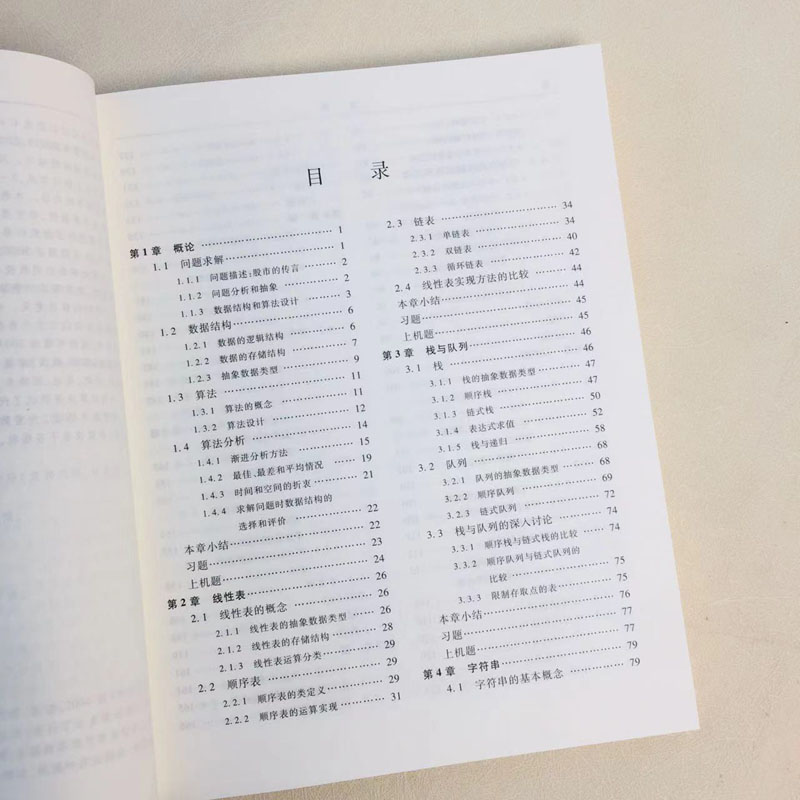 目 录
第1章 概论 …… 1
1.1 问题求解 …… 1
1.1.1 问题描述:股市的传言 …… 2
1.1.2 问题分析和抽象 …… 2
1.1.3 数据结构和算法设计 …… 3
1.2 数据结构 …… 6
1.2.1 数据的逻辑结构 …… 6
1.2.2 数据的存储结构 …… 7
1.2.3 抽象数据类型 …… 9
1.3 算法 …… 11
1.3.1 算法的概念 …… 11
1.3.2 算法设计 …… 12
1.4 算法分析 …… 14
1.4.1 渐进分析方法 …… 15
1.4.2 最佳、最差和平均情况 …… 19
1.4.3 时间和空间的折衷 …… 21
1.4.4 求解问题时数据结构的
选择和评价 …… 22
本章小结 …… 22
习题 …… 23
上机题 …… 24
第2章 线性表 …… 26
2.1 线性表的概念 …… 26
2.1.1 线性表的抽象数据类型 …… 26
2.1.2 线性表的存储结构 …… 28
2.1.3 线性表运算分类 …… 29
2.2 顺序表 …… 29
2.2.1 顺序表的类定义 …… 29
2.2.2 顺序表的运算实现 …… 31
2.3 链表 …… 34
2.3.1 单链表 …… 34
2.3.2 双链表 …… 40
2.3.3 循环链表 …… 42
2.4 线性表实现方法的比较 …… 44
本章小结 …… 44
习题 …… 45
上机题 …… 45
第3章 栈与队列 …… 46
3.1 栈 …… 46
3.1.1 栈的抽象数据类型 …… 47
3.1.2 顺序栈 …… 47
3.1.3 链式栈 …… 50
3.1.4 表达式求值 …… 52
3.1.5 栈与递归 …… 58
3.2 队列 …… 68
3.2.1 队列的抽象数据类型 …… 68
3.2.2 顺序队列 …… 69
3.2.3 链式队列 …… 72
3.3 栈与队列的深入讨论 …… 74
3.3.1 顺序栈与链式栈的比较 …… 74
3.3.2 顺序队列与链式队列的
比较 …… 75
3.3.3 限制存取点的表 …… 75
本章小结 …… 76
习题 …… 77
上机题 …… 77
第4章 字符串 …… 79
4.1 字符串的基本概念 …… 79